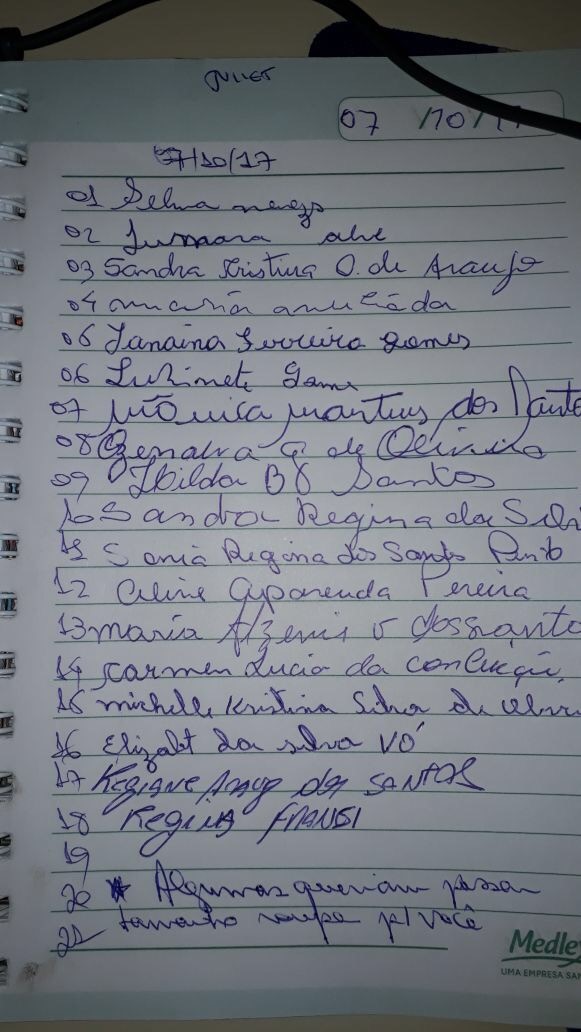 07 /10/17
07/10/17
01 Selma
02 Jumara
03 Sandra Kristina O. de Araujo
04 maria
06 Janaina Ferreira gomes
06 Luzinete Gama
07 Mônica Martins dos Santo
08 G de Oliveira
09 Ilbilda B Santos
10 Sandra Regina da Silv
11 Sonia Regina dos Santos Pinto
12 Aline Aparecida Pereira
13 maria dos santo
14 carmen Lucia da
15 michelle Kristina Silva de
16 Elizabt da silva VÓ
17 Regiane dos SANTOS
18 Regina
19
20 * Algumas queriam passar
21 tamanho roupa p/ você
Medley
UMA EMPRESA SAN